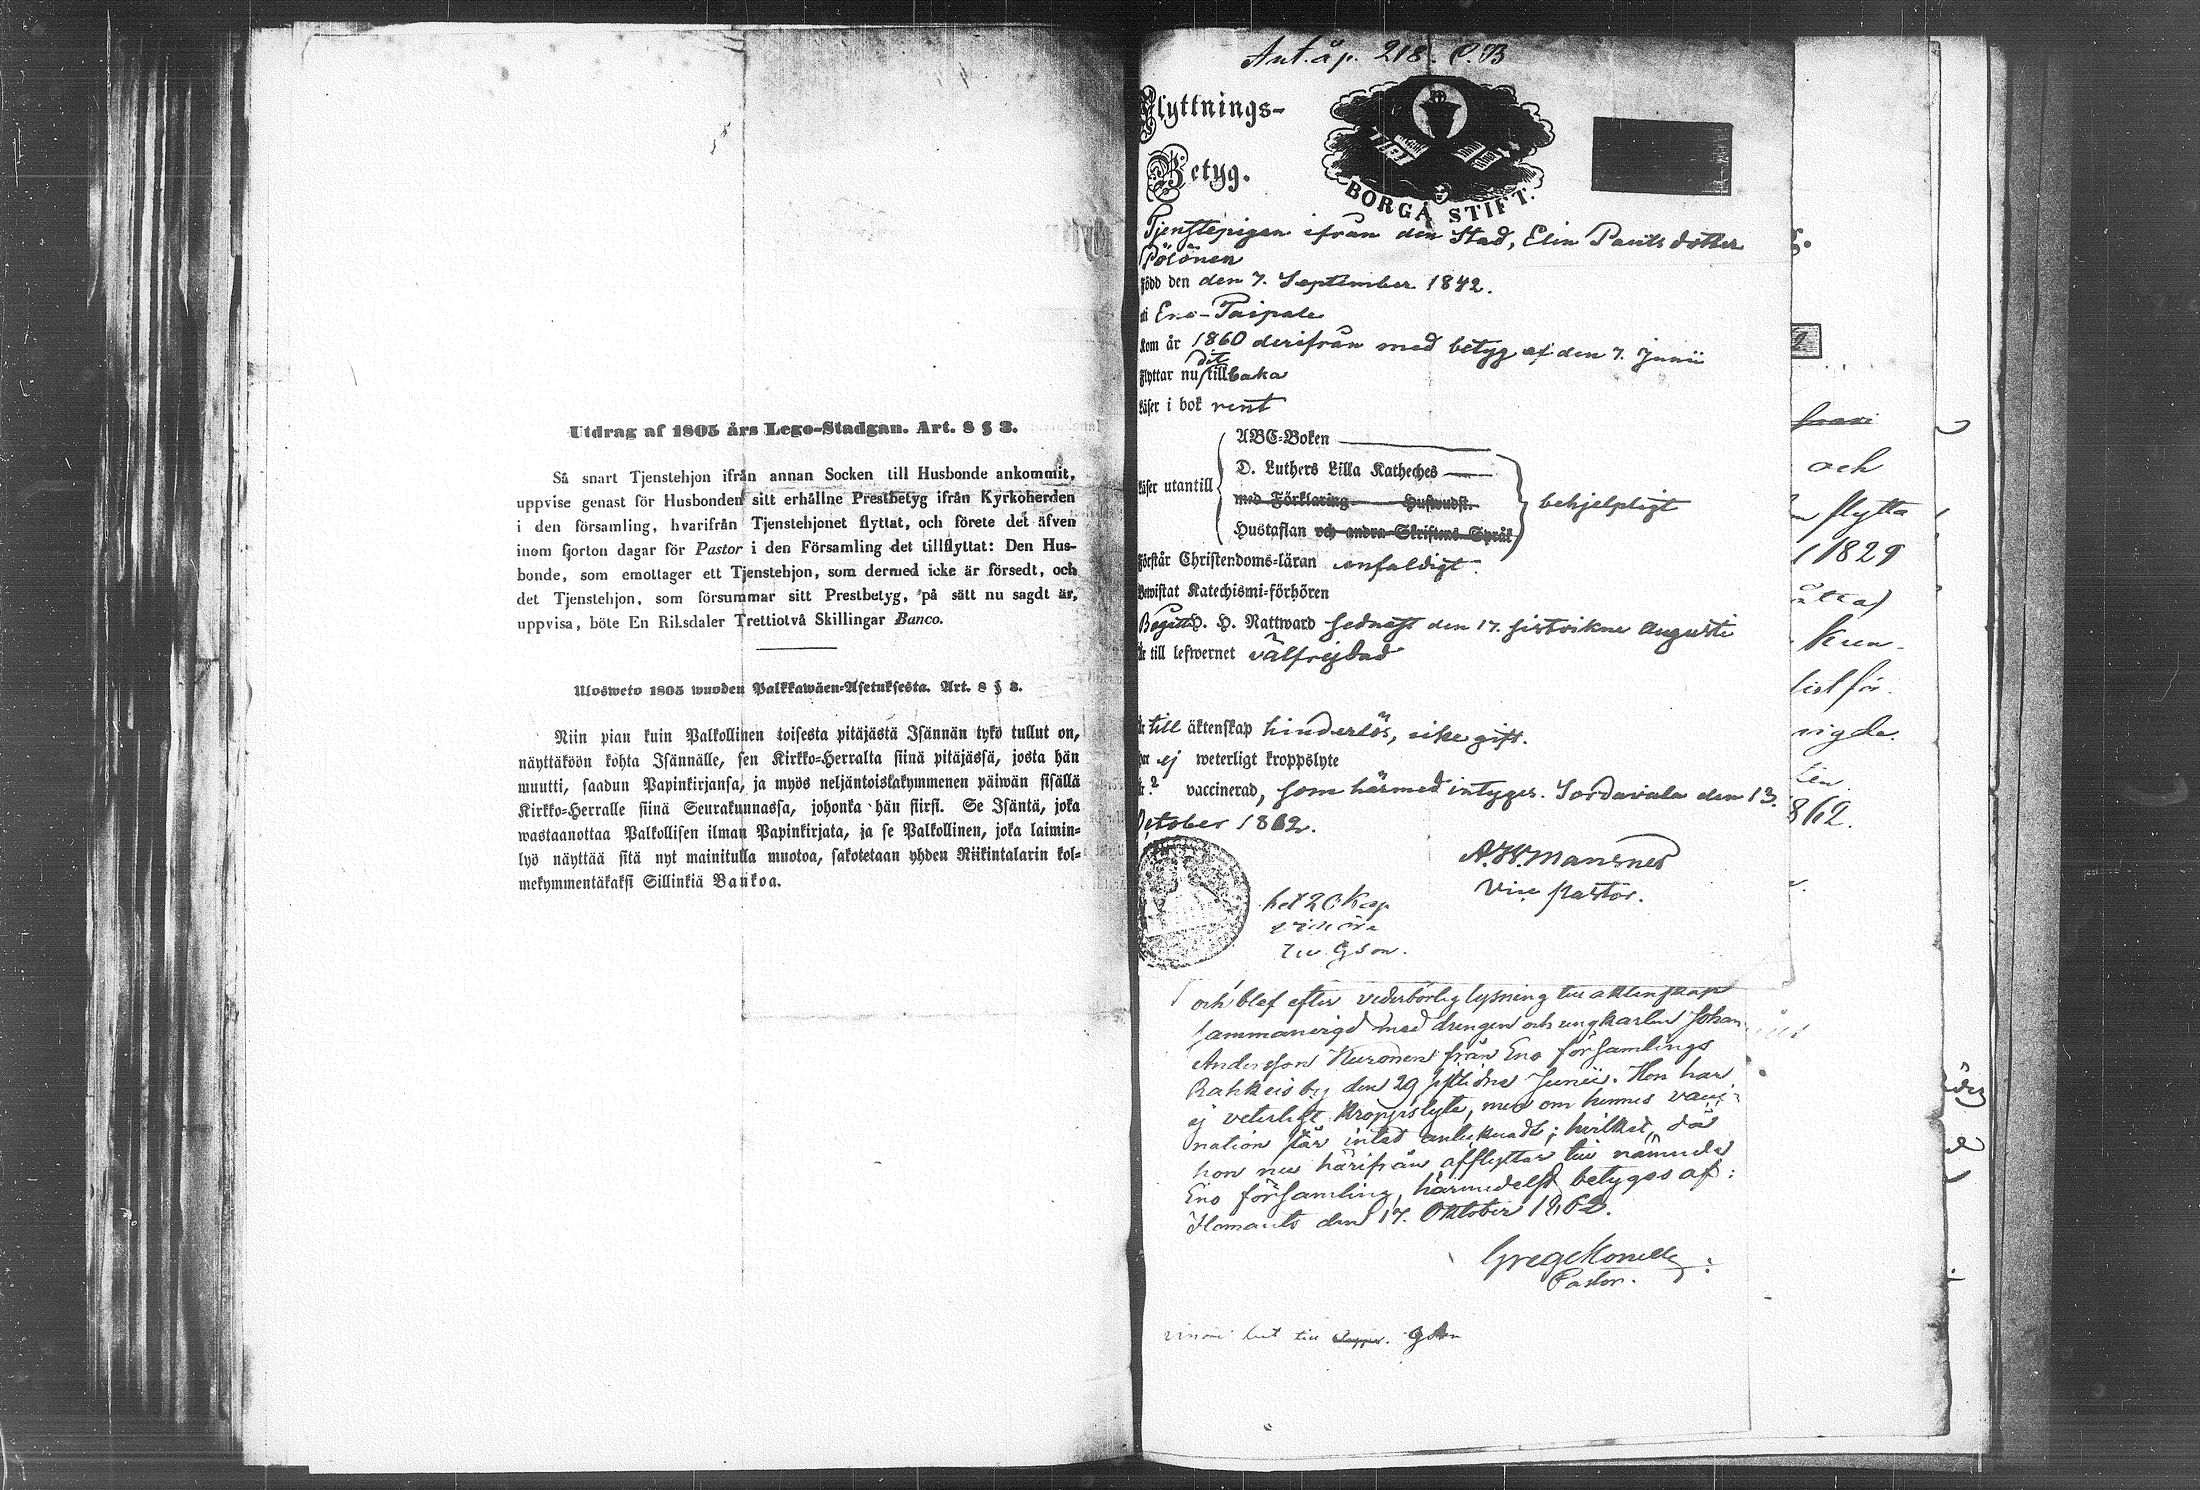 Utdrag af 1805 års Lego-Stadgan. Art. 8 § 3.
Så snart Tjenstehjon ifrån annan Socken till Husbonde ankommit,
uppvise genast för Husbonden sitt erhållne Prestbetyg ifrån Kyrkoherden
i den församling, hvarifrån Tjenstehjonet flyttat, och förete det äfven
inom fjorton dagar för Pastor i den Församling det tillflyttat: Den Hus-
bonde, som emottager ett Tjenstehjon, som dermed icke är försedt, och
det Tjenstehjon, som försummar sitt Prestbetyg, på sätt nu sagdt är,
uppvisa, böte En Riksdaler Trettiotvå Skillingar Banco.
Ulosweto 1805 wuoden Palkkawäen-Asetuksesta. Art. 8 § 3.
Niin pian kuin Palkollinen toisesta pitäjästä Isännän tykö tullut on,
näyttäköön kohta Isännälle, sen Kirkko-Herralta siinä pitäjässä, josta hän
muutti, saadun Papinkirjansa, ja myös neljäntoistakymmenen päiwän sisällä
Kirkko-Herralle siinä Seurakunnassa, johonka hän siirsi. Se Isäntä, joka
wastaanottaa Palkollisen ilman Papinkirjata, ja se Palkollinen, joka laimin-
lyö näyttää sitä nyt mainitulla muotoa, sakotetaan yhden Riikintalarin kol-
mekymmentäkaksi Sillinkiä Bankoa.
Ant. å p. 218. C.B
Flyttnings-
Betyg.
BORGÅ STIFT.
Tjenstepigan ifrån den Stad, Elin Paulsdotter
Pölönen
Född den den 7. September 1842.
i Eno-Paipale
Kom år 1860 derifrån med betyg af den 7. Junii
Flyttar nu dit tillbaka
Läser i bok rent
ABC-Boken
D. Luthers Lilla Katheches
Läser utantill
med Förklaring Huswudst.
behjelpligt
Hustaflan och andra Skriftens Språk
Förstår Christendoms-läran enfaldigt.
Bewistat Katechismi-förhören
Begått H. H. Nattward sednast den 17. sistvikne Augusti
Är till lefwernet välfrejdad
Är till äktenskap hinderlös, icke gift.
Har ej weterligt kroppslyte
Är ? vaccinerad, som härmed intygas. Sordavala den 13.
October 1862.
Vice Pastor.
och blef efter vederbörlig lysning till äktenskap
sammanvigd med drengen och ungkarlen Johan
Andersson Kuronen från Eno församlings
Rahkeis by den 29 sistlidne Junii. Hon har
ej veterligt kroppslyte, men om hennes vacci-
nation står intet antecknadt; hvilket, då
hon nu härifrån afflyttar till nämnde
Eno församling, härmedelst betygas af:
Ilomants den 17. Oktober 1862.
Pastor.
och
flytta
1829
862.